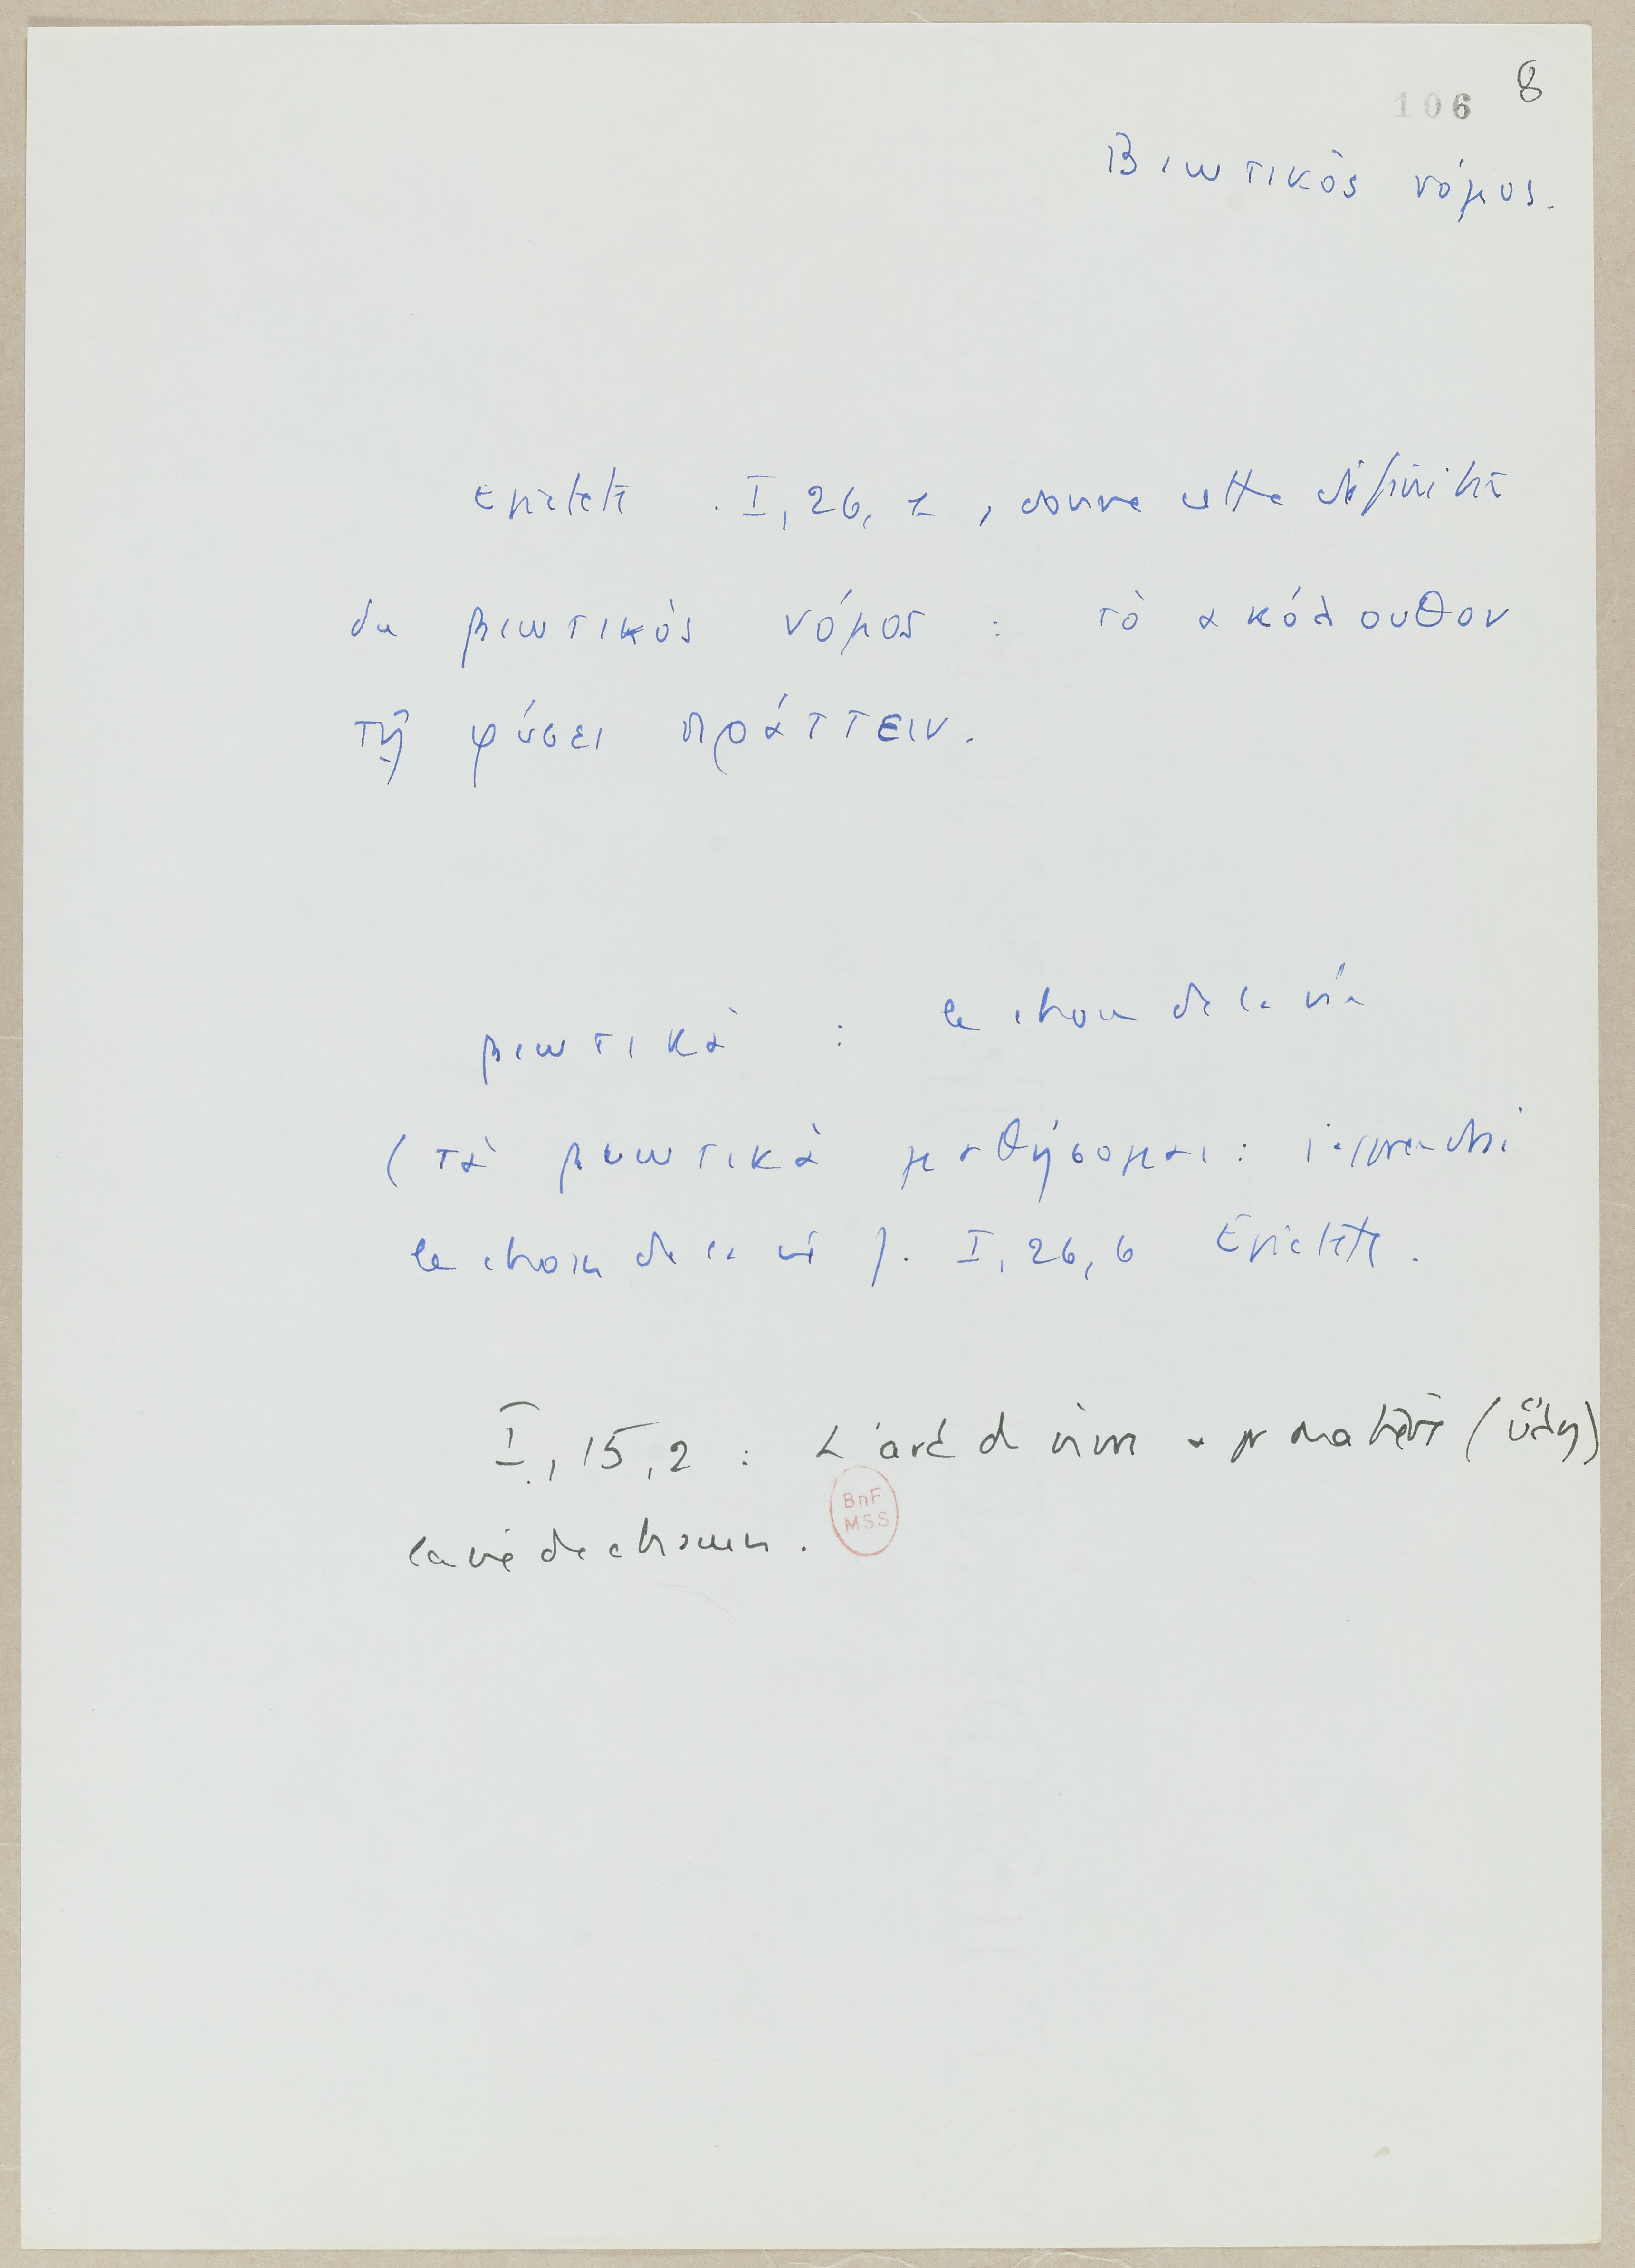 106 8
Βιωτικὸς νόμος.
Epictete. I, 26, 1, donne cette définition
du βιωτικὸς νόμος : τὸ ακόλουθον
τῇ φύσει πράττειν.
βιωτικὰ : les choses de la vie
(τὰ βιωτικὰ μαθήσομαι : j'apprendrai
les choses de la vie). I, 26, 6 Epictete.
I, 15, 2 : L'art de vivre a pr matière (ὕλη)
BnF
MSS
la vie de chacun.